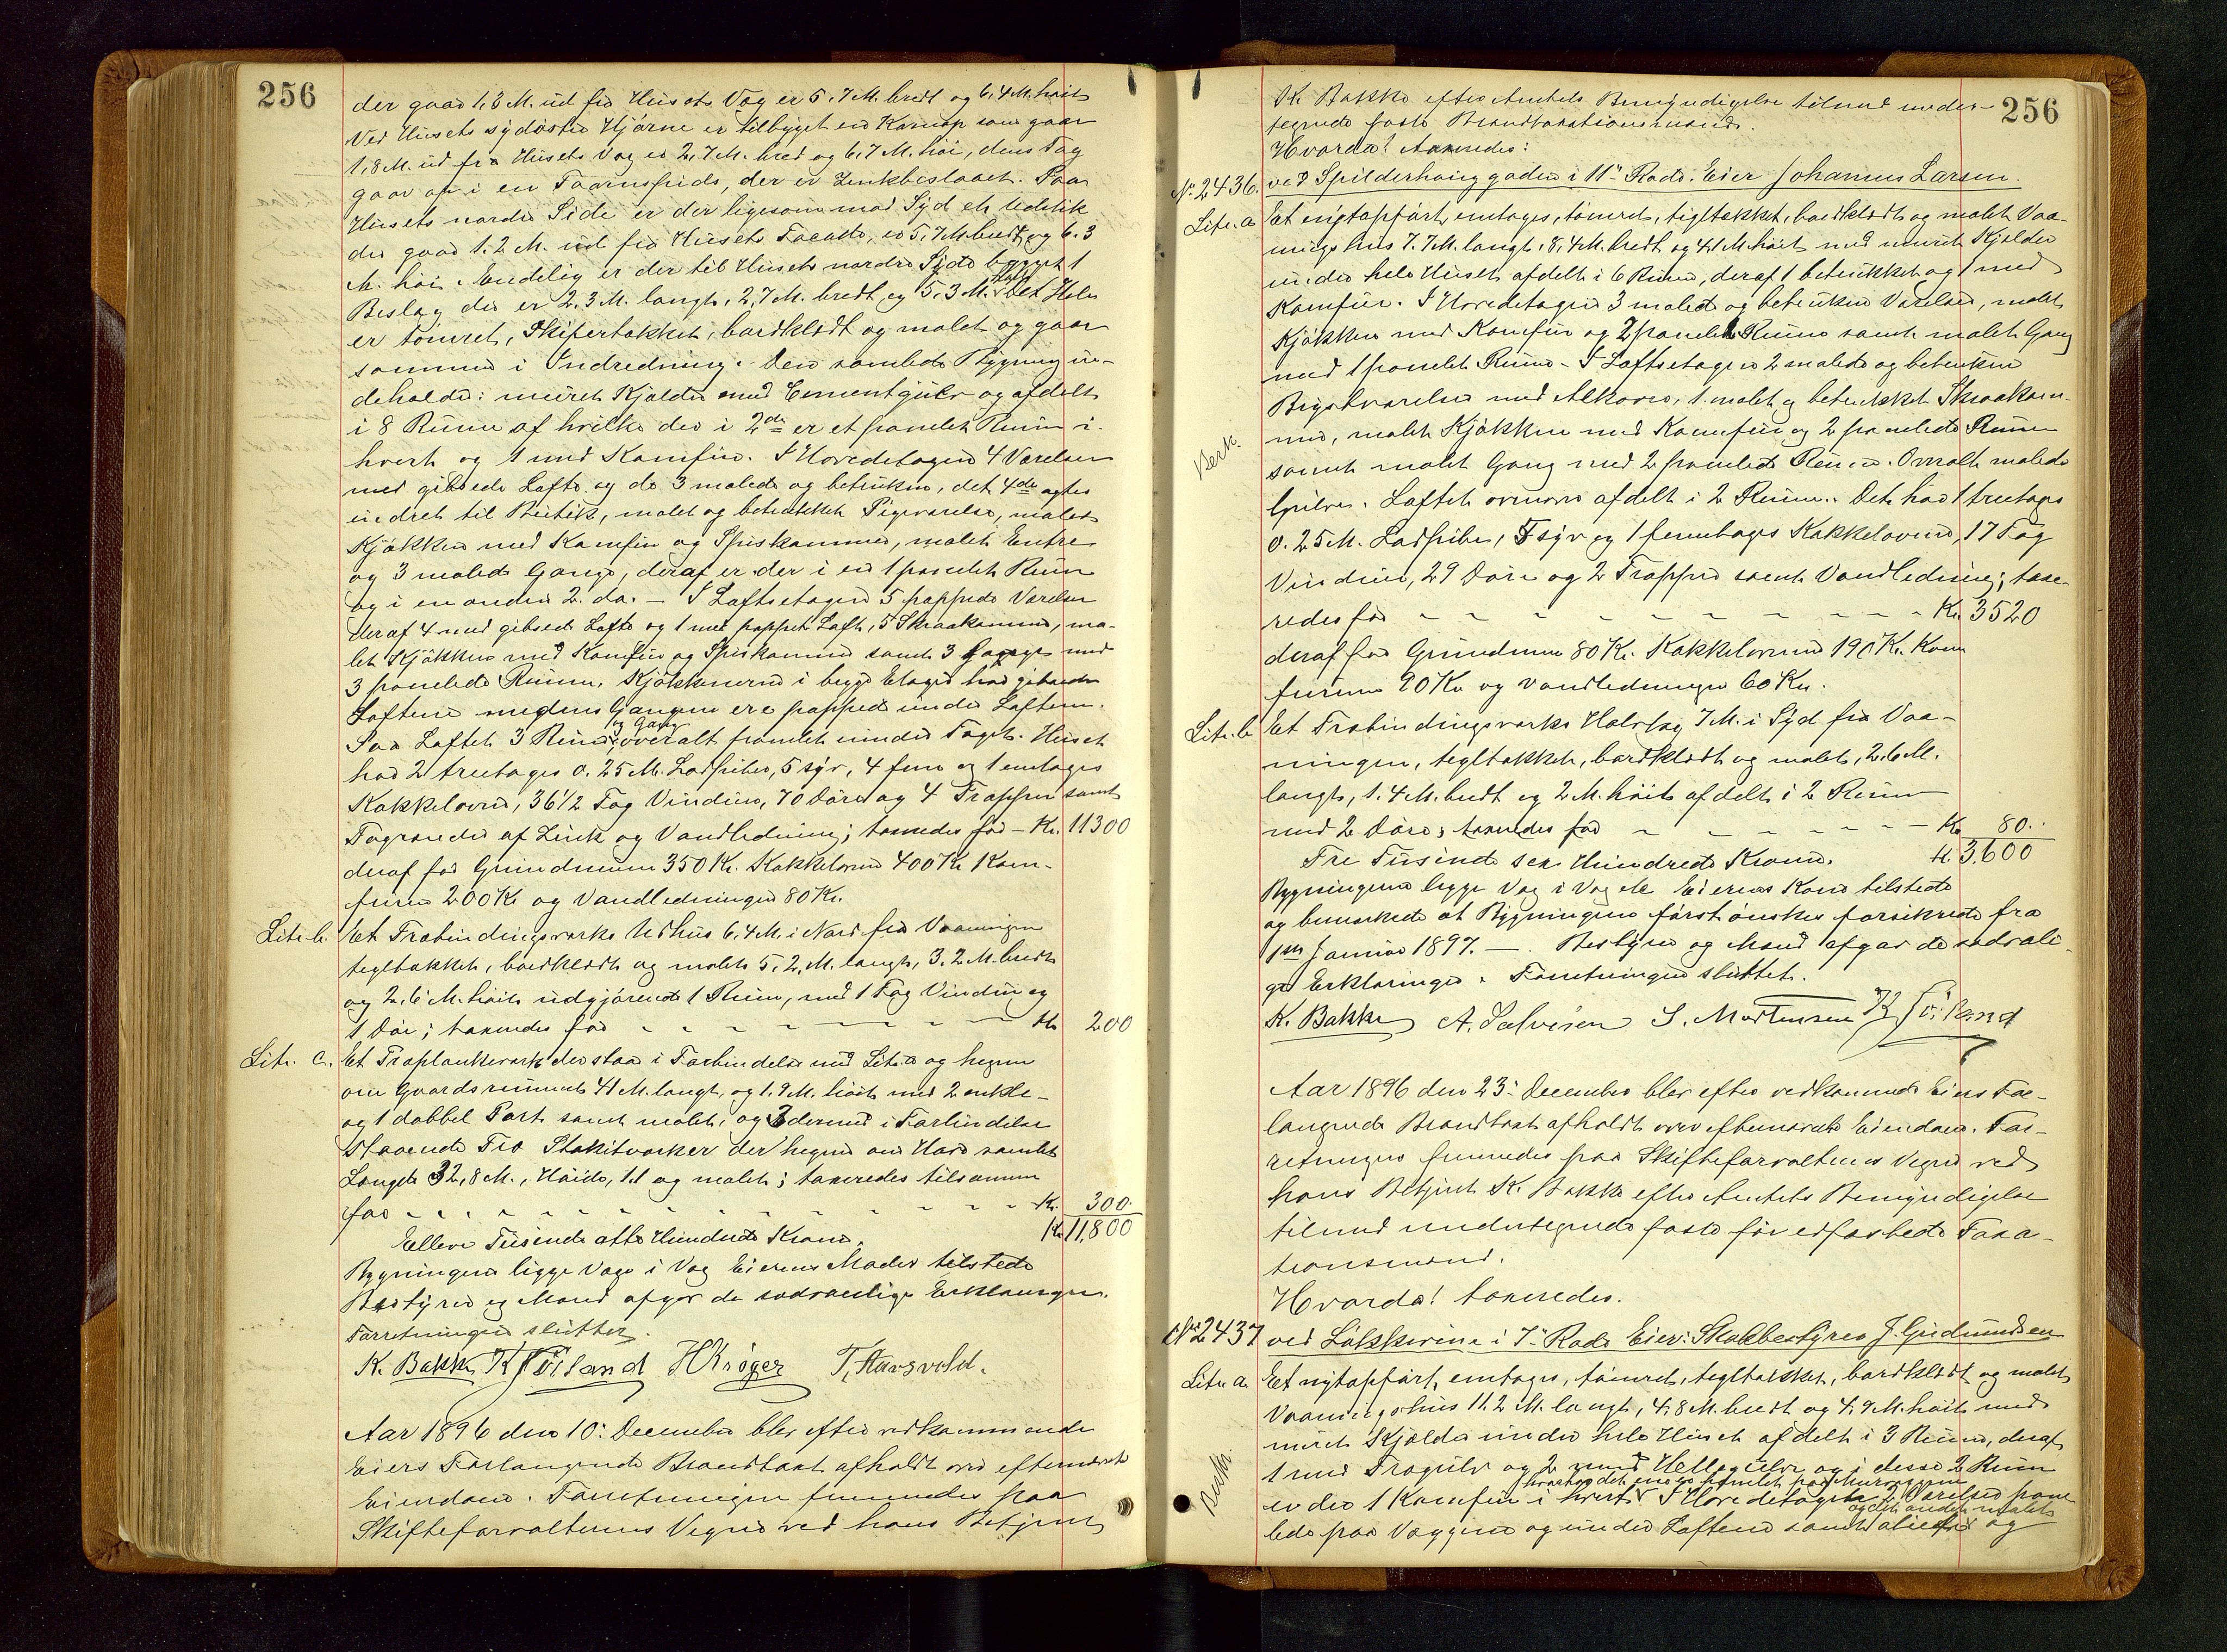 256
der gaar 1,3 M. ud fra Husets Væg er 5,7 M. bredt og 6,4 M. høit
Ved Husets sydøstre Hjørne er tilbygget en Karnap som gaar
1,8 M. ud fra Husets Væg er 2,7 M. bred og 6,7 M. høi, dens Tag
gaar op i en Taarnspids, der er Zinkbeslaaet. Paa
Husets nordre Side er der ligesom mod Syd et Udstik
der gaar 1.2 M. ud fra Husets Facade, er 5,7 M. bredt og 6.3
M. høi. Endelig er der til Husets nordre Side bygget 1
Bislag der er 2.3 M. langt, 2,7 M. bredt og 5,3 M. høit Det Hele
er tømret, Skifertækket, bordklædt og malet og gaar
sammen i Indredning. Den samlede Bygning in-
deholder: muret Kjælder med Cementgulv og afdelt
i 8 Rum af hvilke der i 2de er et panelet Rum i
hvert og 1 med Komfur. I Hovedetagen 4 Værelser
med gibsede Lofte og de 3 malede og betrukne, det 4de agtes
indret til Butik, malet og betrukket Pigeværelse, malet
Kjøkken med Komfur og Spiskammer, malet Entre
og 3 malede Gange, deraf er der i en 1 panelet Rum
og i en anden 2 do. - I Loftsetagen 5 pappede Værelser
deraf 4 med gibsede Lofte og 1 med pappet Loft, 5 Skraakammer, ma-
let Kjøkken med Komfur og Spiskammer samt 3 Gange med
3 panelede Rum. Kjøkkenerne i begge Etager har gibsede
Loftene medens Gangene ere pappede under Loftene.
Paa Loftet 3 Rum og Gang overalt panelet under Taget. Huset
har 2 treetages 0.25 M. Ladpiber, 5 syv, 4 fem og 1 enetages
Kakkelovne, 36 1/2 Fag Vinduer, 70 Døre og 4 Trapper samt
Tagrender af Zink og Vandledning; taxeredes for - Kr. 11300
deraf for Grundmuren 350 Kr. Kakkelovne 400 Kr Kom-
furene 200 Kr og Vandledningen 80 Kr.
Litr. b. Et Træbindingsværks Udhus 6,4 M. i Nord fra Vaaningen
tegltækket, bordklædt og malet 5,2 M. langt, 3.2 M. bredt
og 2,6 M. høit udgjørende 1 Rum, med 1 Fag Vindu og
1 Dør; taxeredes for - - - - - - - - Kr 200
Litr. c. Et Træplankeværk der staar i Forbindelse med Litr. a og hegner
om Gaardsrummet 41 M. langt, og 1.9 M. høit med 2 enkle-
og 1 dobbel Port samt malet, og dermed i Forbindelse
staaende Træ Stakitværker der hegner om Have samlet
Længde 32,8 M., Høide, 1.1 og malet; taxeredes tilsammen
for - - - - - - - - - - - - - Kr. 300.
Elleve Tusinde otte Hundrede Kroner. Kr 11,800
Bygningerne ligge Væg i Væg Eierens Moder tilstede
Bestyrer og Mænd afgav de sædvanlige Erklæringer.
Forretningen sluttet.
K. Bakke K Föiland H Krøger T. Aarsvold.
Aar 1896 den 10: December blev efter vedkommende
Eiers Forlangende Brandtaxt afholdt over efternævnte
Eiendom. Forretningen fremmedes paa
Skifteforvalterens Vegne ved hans Betjent
256
K. Bakke efter Amtets Bemyndigelse tilmed under-
tegnede faste Brandtaxationsmænd.
Hvorda! taxeredes:
No. 2436. ved Spilderhauggaden i 11te Rode. Eier Johannes Larsen.
Litr. a Et nytopført, enetages, tømret, tegltækket, bordklædt og malet Vaa-
ningshus 7.7 M. langt, 8,4 M. bredt og 4.1 M. høit med muret Kjælder
under hele Huset afdelt i 6 Rum, deraf 1 betrukket og 1 med
Komfur. I Hovedetagen 3 malede og betrukne Værelser, malet
Kjøkken med Komfur og 2 panelede Rum samt malet Gang
med 1 panelet Rum - I Loftsetagen 2 malede og betrukne
Bryst værelser med Alkover, 1 malet og betrukket Skraakam-
mer, malet Kjøkken med Komfur og 2 panelede Rum
Besk.
samt malet Gang med 2 panelede Rum. Overalt malede
Gulve. Loftet ovenover afdelt i 2 Rum. Det har 1 treetages
0.25 M. Ladpibe, syv og 1 femetages Kakkelovne, 17 Fag
Vinduer, 29 Døre og 2 Trapper samt Vandledning; taxe-
redes for - - - - - - - - - - Kr 3520
deraf for Grundmuren 80 Kr. Kakkelovnene 190 Kr. Kom
furene 90 Kr og Vandledningen 60 Kr.
Litr. b Et Træbindingsværks Halvtag 7 M. i Syd fra Vaa-
ningen, tegltækket, bordklædt og malet, 2.6 M.
langt, 1.4 M. bredt og 2 M. høit afdelt i 2 Rum
med 2 Døre; taxeredes for - - - - - - - Kr 80.
Tre Tusinde sex Hundrede Kroner. Kr. 3,600
Bygningerne ligge Væg i Væg Eierens Kone tilstede
og bemærkede at Bygningerne først ønskes forsikrede fra
1ste Januar 1897. - . Bestyrer og Mænd afgav de sædvanli-
ge Erklæringer. Forretningen sluttet.
K. Bakke A. Salvesen S. Mortensen K Föiland
Aar 1896 den 23: December blev efter vedkommende Eiers For-
langende Brandtaxt afholdt over efternævnte Eiendom. For-
retningen fremmedes paa Skifteforvalterens Vegne ved
hans Betjent K. Bakke efter Amtets Bemyndigelse
tilmed undertegnede faste før edfæstede Taxa-
tionsmænd.
Hvorda! taxeredes.
No. 2437 ved Løkkeveien i 7de Rode Eier: Skolebestyrer J. Gudmundsen
Litr. a Et nytopført, enetages, tømret, tegltækket, bordklædt og malet
Vaaningshus 11.2 M. langt, 4,8 M. bredt og 4,9 M. høit med
muret Kjælder under hele Huset afdelt i 3 Rum, deraf
Besk.
1 med Trægulv og 2 med Hellegulv og i desse 2 Rum
hvoraf det ene er panelet paa Murvæggene
er der 1 Komfur i hvert. I Hovedetagen 2 Værelser pane
og det andet malet
lede paa Væggene og under Loftene samt og